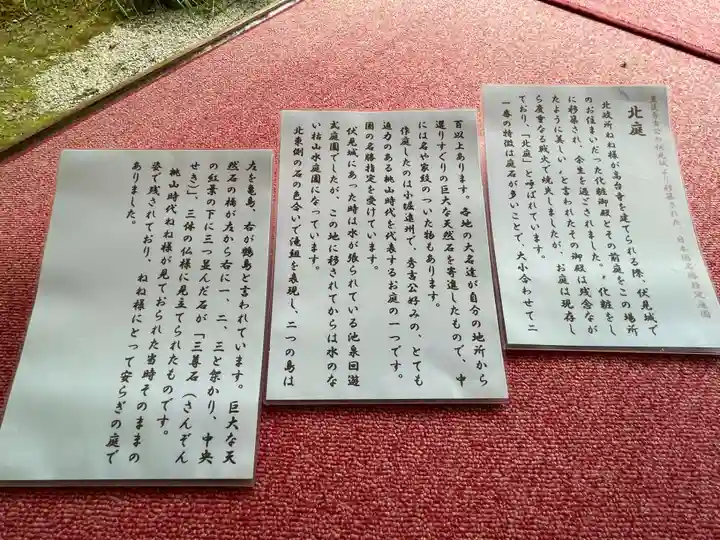 豊臣秀吉公の伏見城より移築された 日本国之勝指定庭園
北庭
北政所ねね様が高台寺を建てられる際、伏見城で
のお住まいだった化粧御殿とその前庭をこの場所
に移築され、余生を過ごされました。「化粧をし
たように美しい」と言われたその御殿は残念なが
ら度重なる戦火で焼失しましたが、お庭は現存し
ており、「北庭」と呼ばれています。
一番の特徴は庭石が多いことで、大小合わせて二
百以上あります。各地の大名達が自分の地所から
選りすぐりの巨大な天然石を寄進したもので、中
には名や家紋のついた物もあります。
作庭したのは小堀遠州で、秀吉公好みの、とても
迫力のある桃山時代を代表するお庭の一つです。
国の名勝指定を受けています。
伏見城にあった時は水が張られている池泉回遊
式庭園でしたが、この地に移されてからは水のな
い枯山水庭園になっています。
北東側の石の色合いで滝組を表現し、二つの島は
左を亀島、右が鶴島と言われています。巨大な天
然石の橋が左から右に一、二、三と架かり、中央
の紅葉の下に三つ並んだ石が「三尊石（さんぞん
せき）」、三体の仏様に見立てられたものです。
桃山時代ねね様が見ておられた当時そのままの
姿で残されており、ねね様にとって安らぎの庭で
ありました。